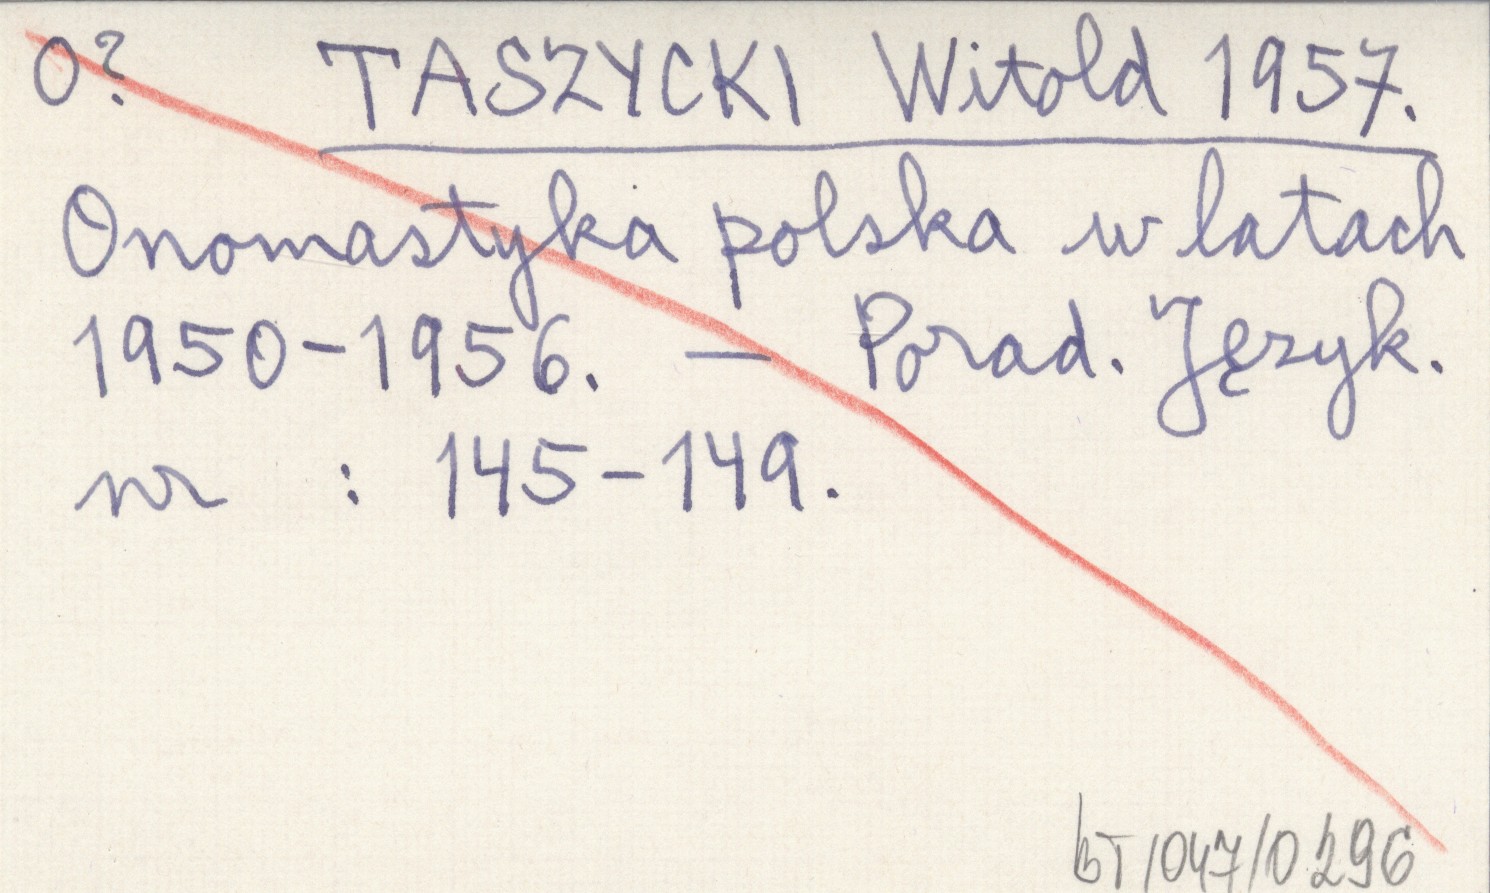 O? TASZYCKI Witold 1957.
Onomastyka polska w latach
1950-1956. — Porad. Język.
nr : 145-149.
BT/047/0296